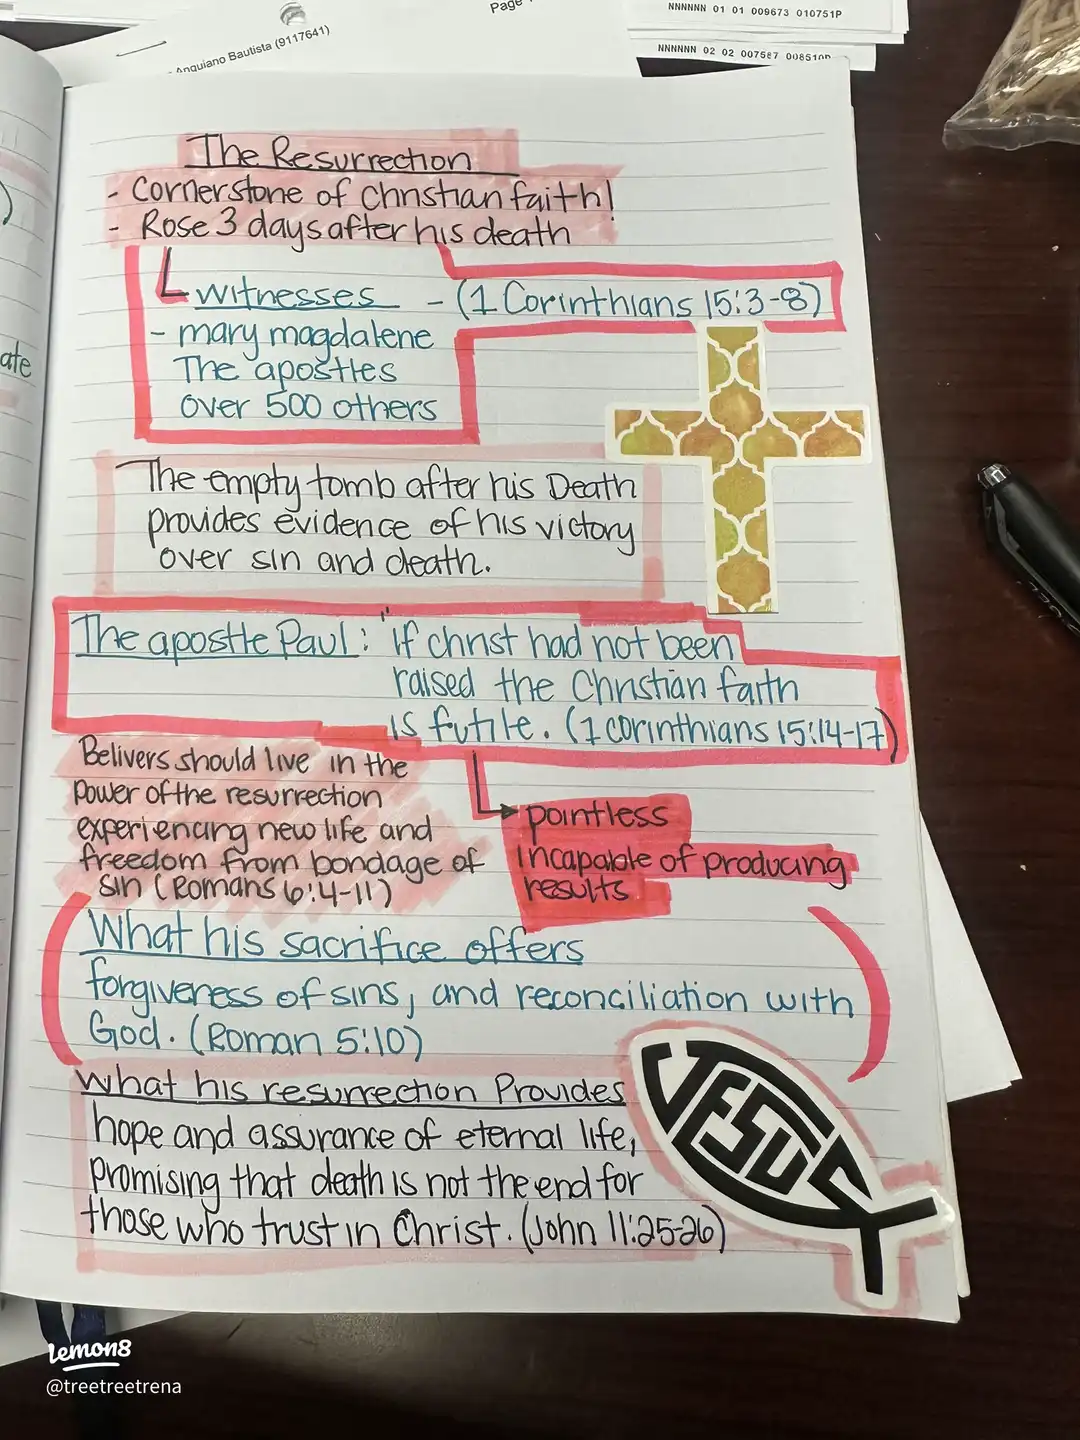 Page
NNNNNN 01 01 009673 010751P
Anguiano Bautista (9117641)
NNNNNN 02 02 007587 008510P
The Resurrection
- Cornerstone of Christian faith!
- Rose 3 days after his death
witnesses - (1 Corinthians 15:3-8)
- mary magdalene
The apostles
over 500 others
ate
The empty tomb after his Death
provides evidence of his victory
over sin and death.
The apostle Paul: "if christ had not been
raised the Christian faith
is futile. (1 corinthians 15:14-17)
Belivers should live in the
power of the resurrection
experiencing new life and
freedom from bondage of
sin (Romans 6:4-11)
pointless
incapable of producing
results
What his sacrifice offers
forgiveness of sins, and reconciliation with
God. (Roman 5:10)
What his resurrection Provides
hope and assurance of eternal life,
promising that death is not the end for
those who trust in Christ. (John 11:25-26)
JESUS
lemon8
@treetreetrena